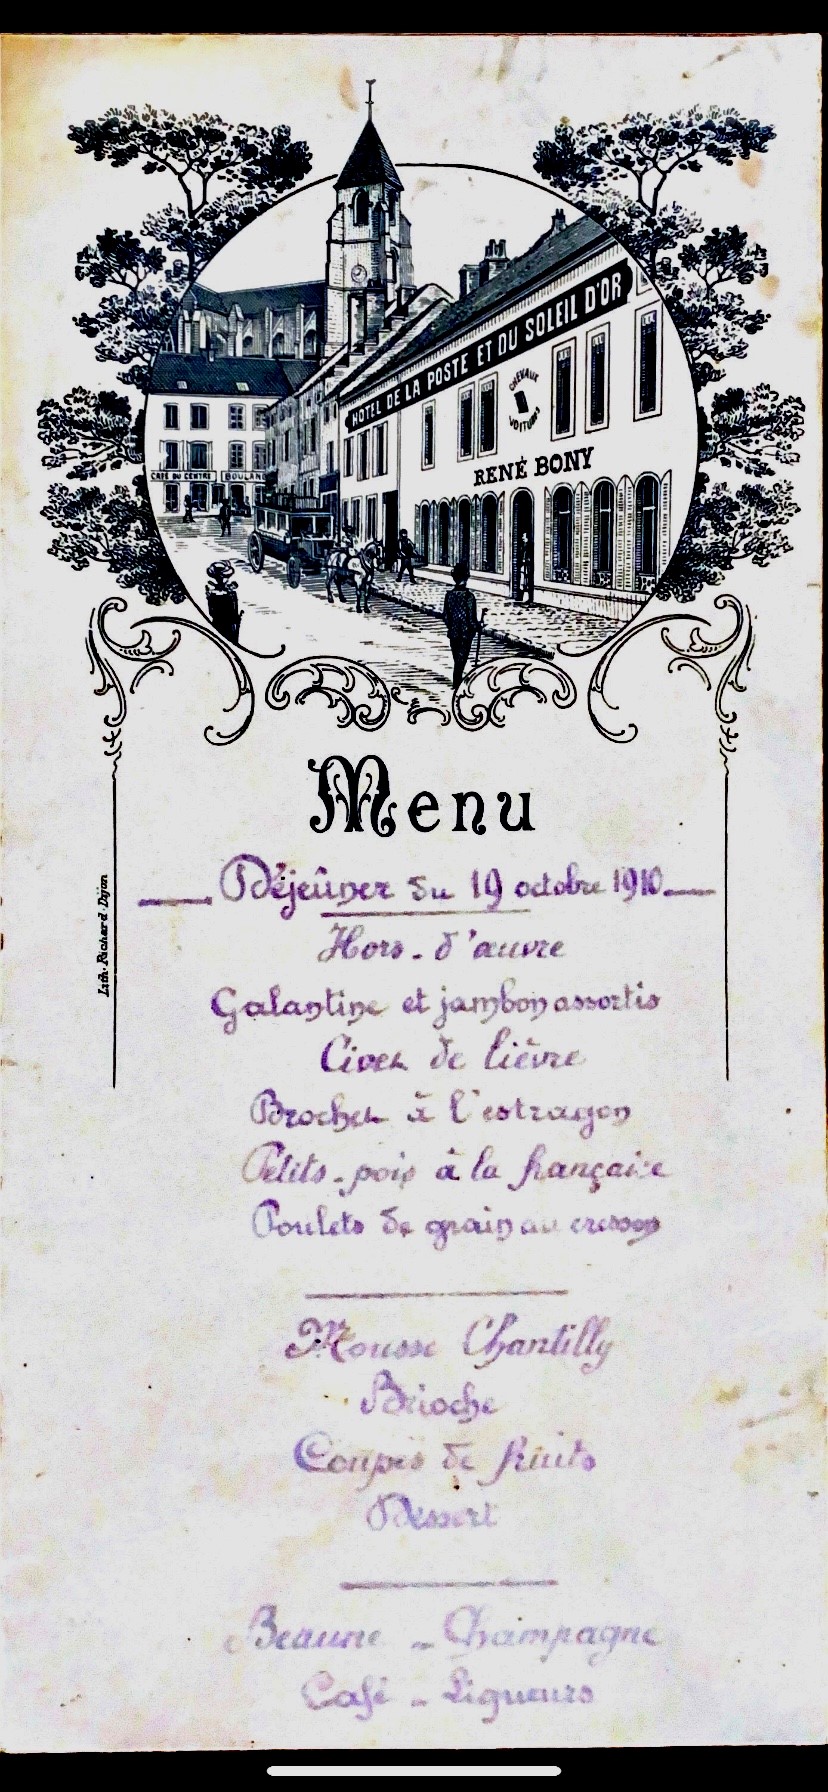 HOTEL DE LA POSTE ET DU SOLEIL D'OR
CHEVAUX
VOITURES
RENÉ BONY
CAFÉ DU CENTRE
BOULAN
Menu
Déjeûner du 19 octobre 1910
Hors-d'œuvre
Galantine et jambon assortis
Civet de lièvre
Brochet à l'estragon
Petits-pois à la française
Poulets de grain au cresson
Mousse Chantilly
Brioche
Coupes de fruits
Dessert
Beaune - Champagne
Café - Liqueurs
Lith. Richard. Dijon